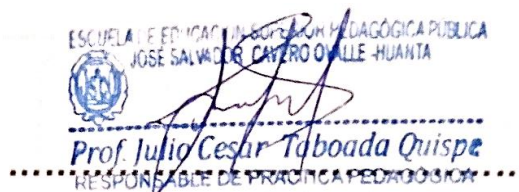 ESCUELA DE EDUCACIÓN SUPERIOR PEDAGÓGICA PÚBLICA
JOSÉ SALVADOR CAVERO OVALLE -HUANTA
Prof. Julio Cesar Taboada Quispe
RESPONSABLE DE PRÁCTICA PEDAGÓGICA